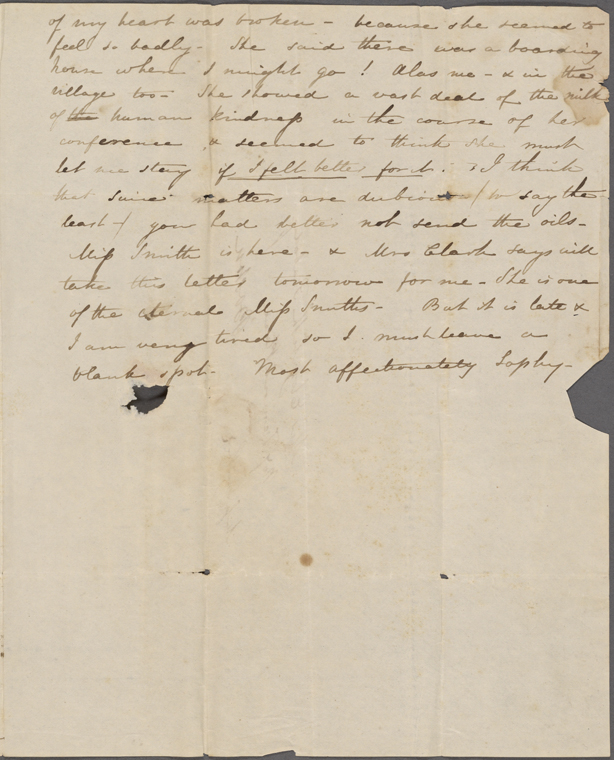 of my heart was broken - because she seemed to
feel so badly - She said there was a boarding
house where I might go ! Alas me - & in the
village too - She showed a vast deal of the milk
of the human kindness in the course of her
conference & seemed to think she must
let me stay if I felt better for it. I think
that since matters are dubious (to say the
least -) you had better not send the oils -
Miss Smith is here - & Mrs Clark says will
take this letter tomorrow for me - She is one
of the eternal Miss Smiths - But it is late &
I am very tired so I must leave a
blank spot - Most affectionately Sophy -